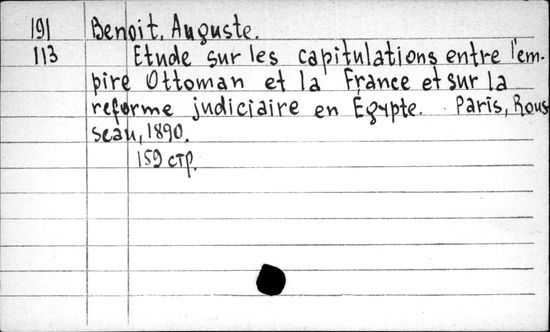 191 Benoit, Auguste.
113 Etude sur les capitulations entre l'em-
pire Ottoman et la France et sur la
reforme judiciaire en Égypte. Paris, Rous
seau, 1890.
159 стр.